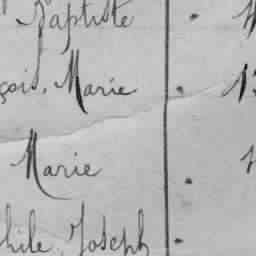 Baptiste
çois, Marie
Marie
hile Joseph